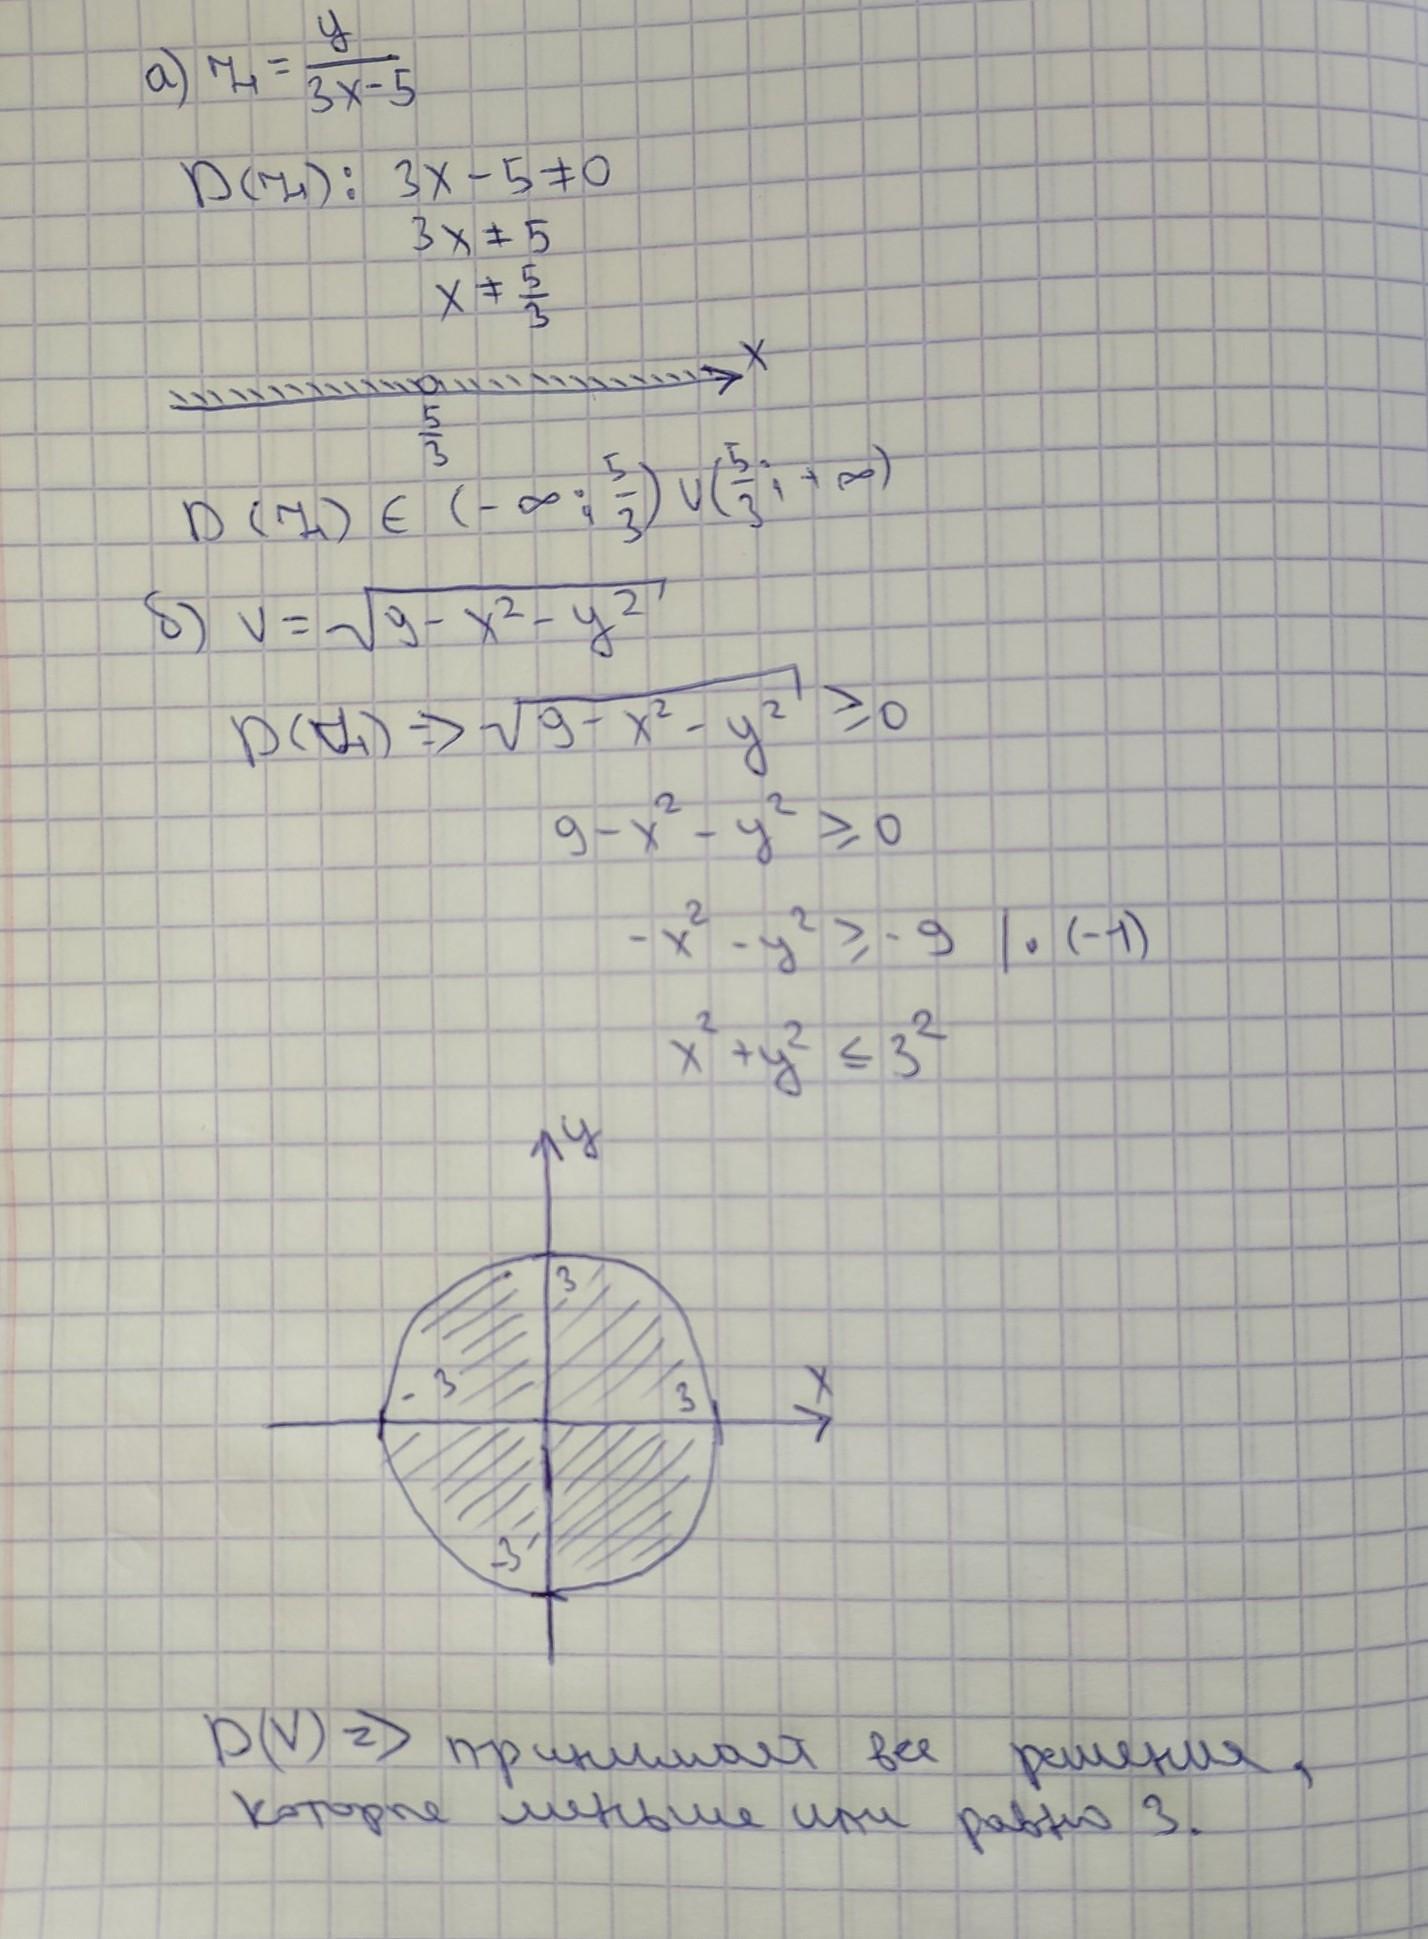 а) z = y/(3x-5)
D(z): 3x - 5 ≠ 0
3x ≠ 5
x ≠ 5/3
x
5/3
D(z) ∈ (-∞; 5/3) ∪ (5/3; +∞)
б) V = √(9 - x² - y²)
D(z) => √(9 - x² - y²) ≥ 0
9 - x² - y² ≥ 0
-x² - y² ≥ -9 | · (-1)
x² + y² ≤ 3²
y
3
-3 3 x
-3
D(V) => принимает все решения,
которые меньше или равно 3.